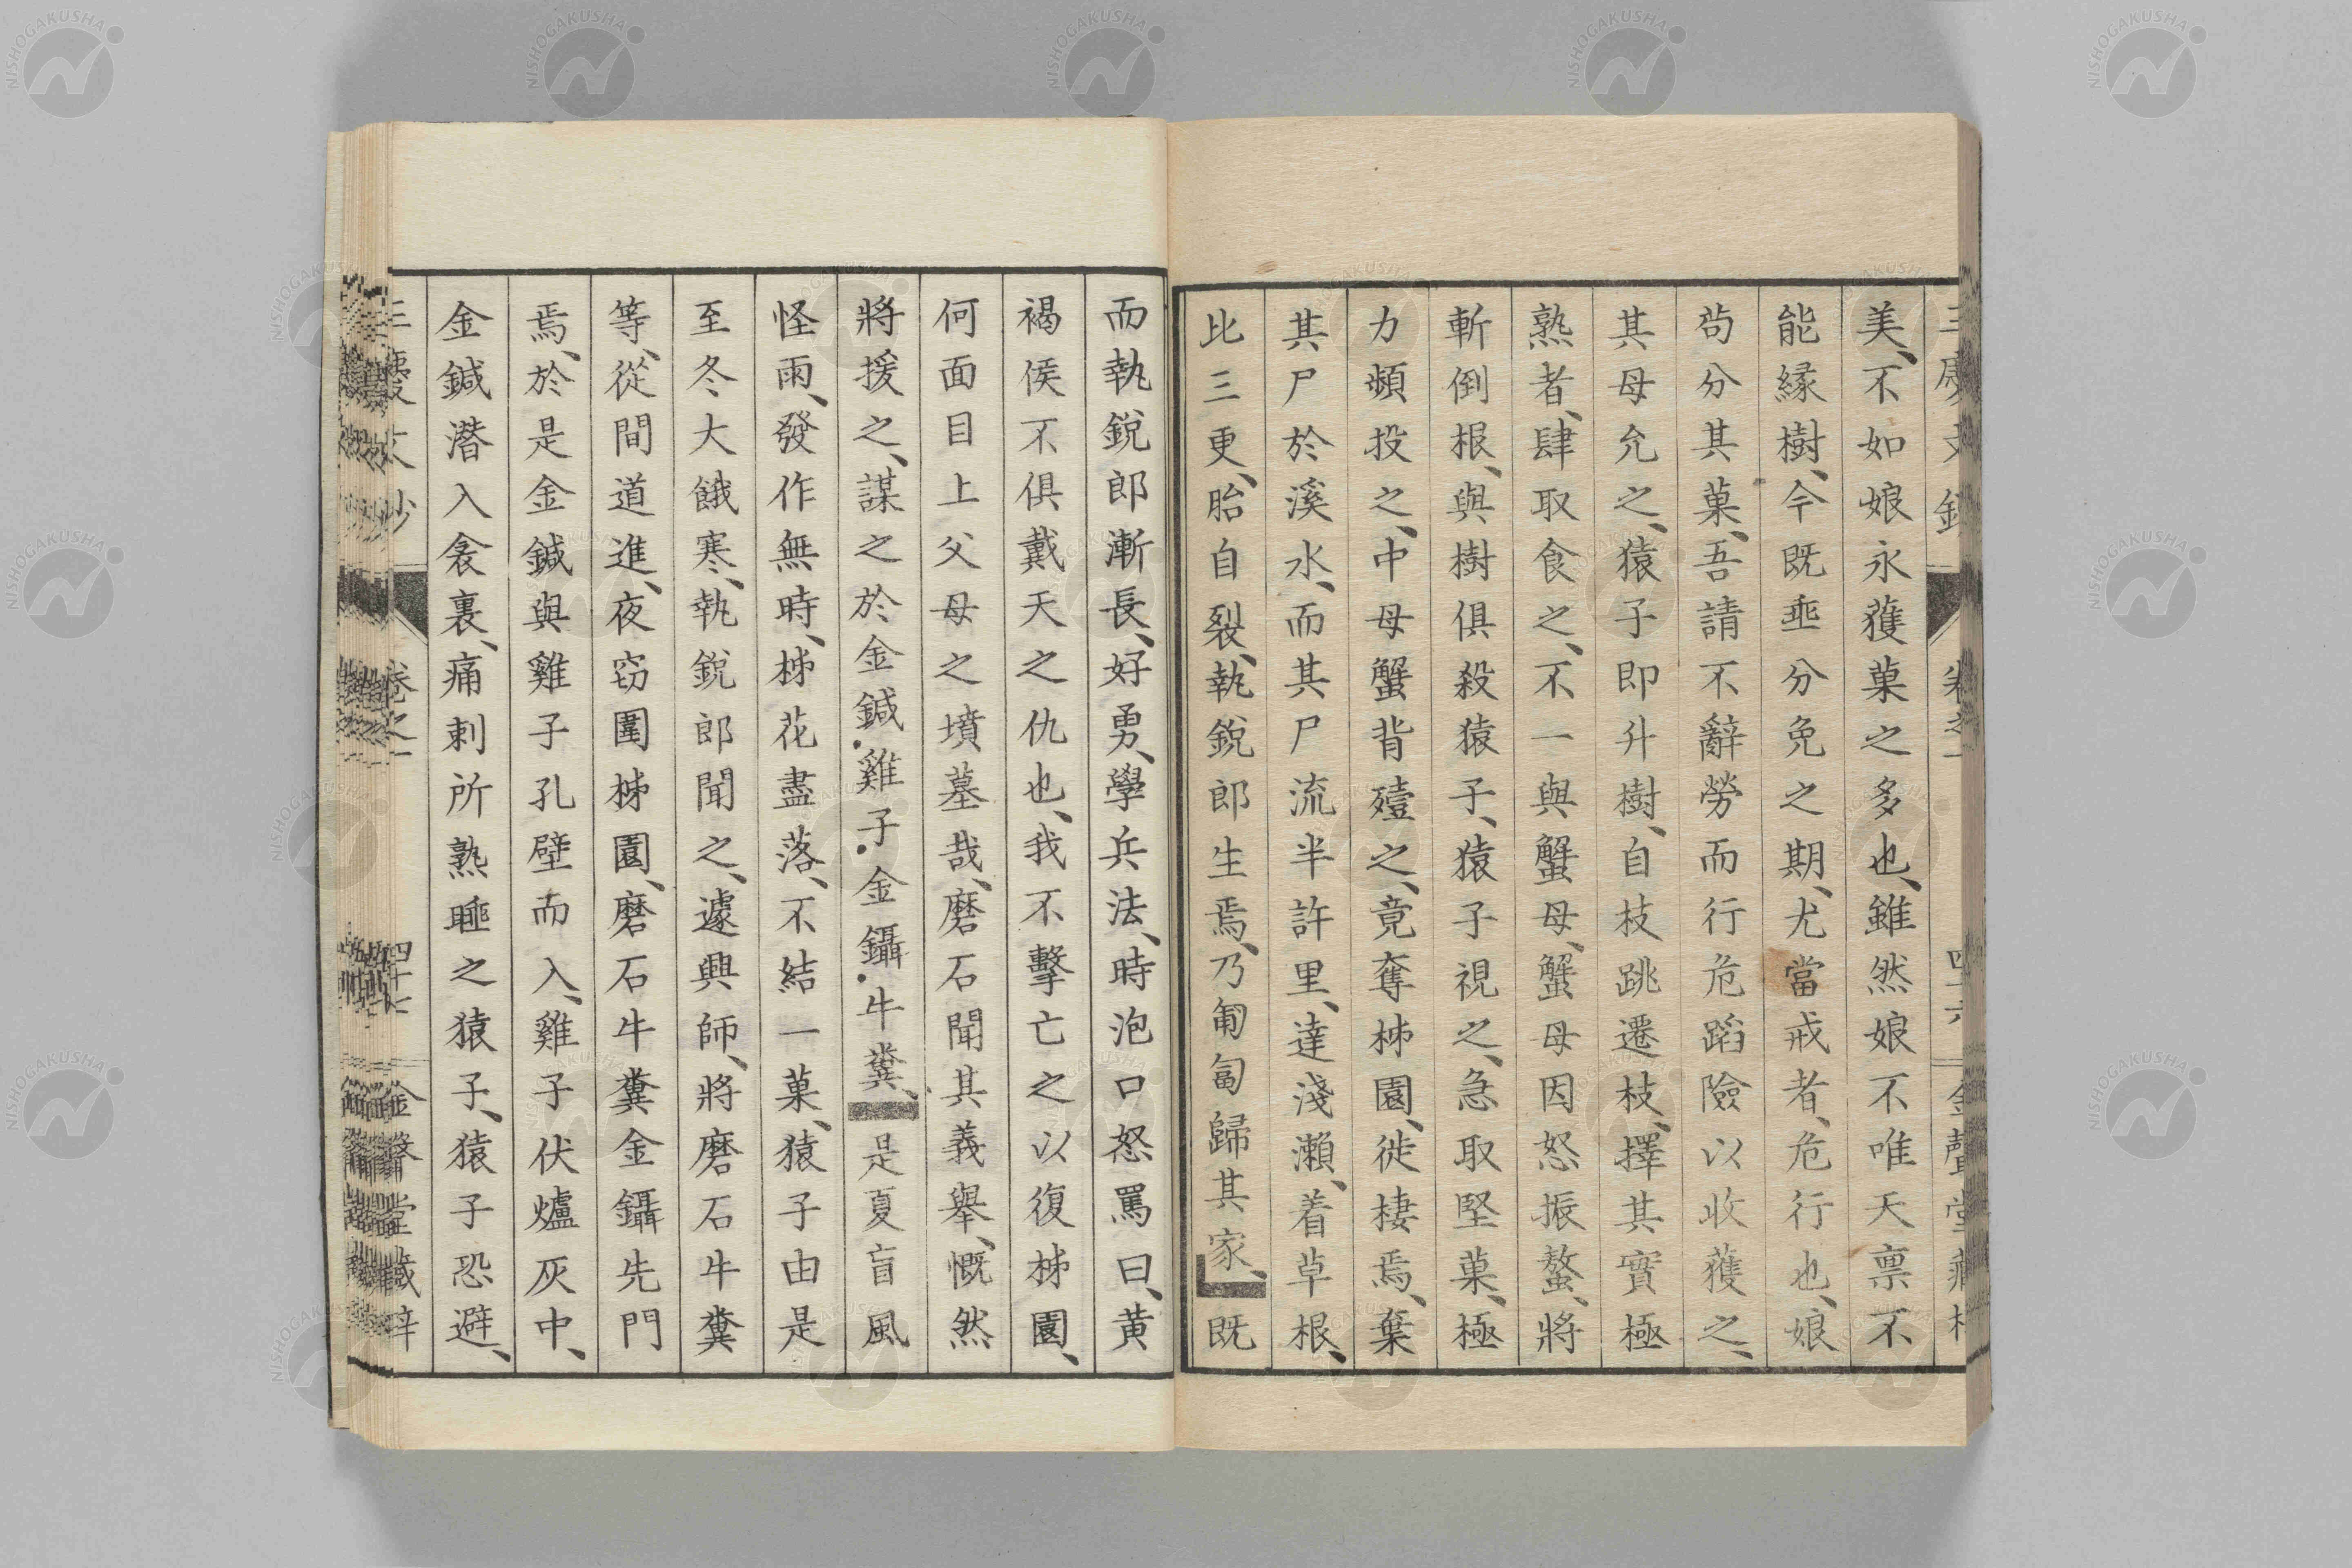 美、不如娘永蒦菓之多也、雖然娘不唯天禀不
能緣樹、今既亟分免之期、尤當戒者、危行也、娘
茍分其菓、吾請不辭勞而行危蹈險以收蒦之、
其母允之、猿子即升樹、自枝跳遷枝、擇其實極
熟者、肆取食之、不一與蟹母、蟹母因怒振螯、將
斬倒根、與樹俱殺猿子、猿子視之、急取堅菓、極
力頻投之、中母蟹背殪之、竟奪柹園、徙棲焉、棄
其尸於溪水、而其尸流半許里、達淺瀨、着草根、
比三更、胎自裂、執銳郎生焉、乃匍匐歸其家、既
而執銳郎漸長、好勇、學兵法、時泡口怒罵曰、黄
褐侯不俱戴天之仇也、我不擊亡之以復柹園、
何面目上父母之墳墓哉、磨石聞其義舉、慨然
將援之、謀之於金鍼・雞子・金鑷・牛糞、是夏盲風
怪雨、發作無時、柹花盡落、不結一菓、猿子由是
至冬大餓寒、執銳郎聞之、遽興師、將磨石牛糞
等、從間道進、夜窃圍柹園、磨石牛糞金鑷先門
焉、於是金鍼與雞子孔壁而入、雞子伏爐灰中、
金鍼潜入衾裏、痛刺所熟睡之猿子、猿子恐避、
卷之一
四十七
NISHOGAKUSHA